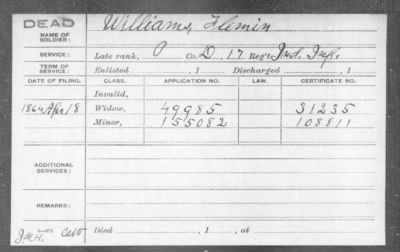 DEAD
Williams, Flemin
NAME OF SOLDIER:
SERVICE: Late rank, P Co. D, 17 Reg't Ind. Inf.
TERM OF SERVICE: Enlisted , 1 Discharged , 1
DATE OF FILING. CLASS. APPLICATION NO. LAW. CERTIFICATE NO.
Invalid,
1864 Apr 18 Widow, 49985 31235
Minor, 155082 108811
ADDITIONAL SERVICES:
REMARKS:
Died , 1 , at
J.M.H.